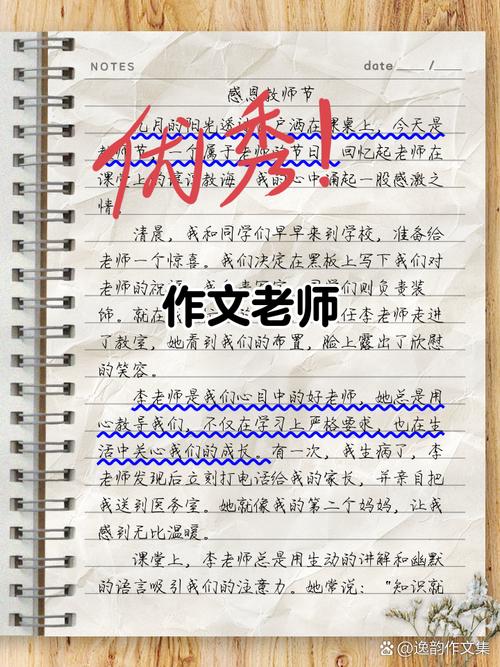 NOTES
date /
感恩教师节
九月的阳光透过 户洒在课桌上，今天是
教师节，一个属于老师的节日。回忆起老师在
课堂上的谆谆教诲，我的心中涌起一股感激之
情
优秀！
清晨，我和同学们早早来到学校，准备给
老师一个惊喜。我们决定在黑板上写下我们对
老师的祝 们则负责装
饰。就在 任李老师走进
作文老师
了教室，她看到我们的布置，脸上露出了欣慰
的笑容。
李老师是我们心目中的好老师，她总是用
心教导我们，不仅在学习上严格要求，也在生
活中关心我们的成长。有一次，我生病了，李
老师发现后立刻打电话给我的家长，并亲自把
我送到医务室。她就像我的第二个妈妈，让我
感到无比温暖。
课堂上，李老师总是用生动的讲解和幽默
的语言吸引我们的注意力。她常说：“知识就
@逸韵作文集